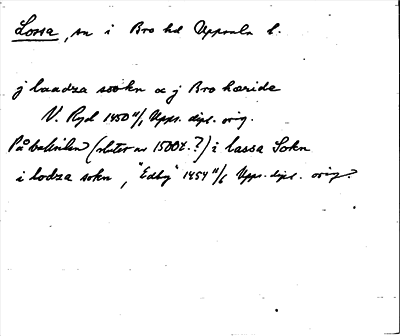 Lossa, sn i Bro hd Uppsala l.
j laadza sookn oc j Bro hæride
N. Ryd 1450 11/1 Upps. dipl. orig.
På baksidan (slutet av 1500t.?) i lassa Sokn
i lodza sokn, "Edby" 1454 11/6 Upps. dipl. orig.